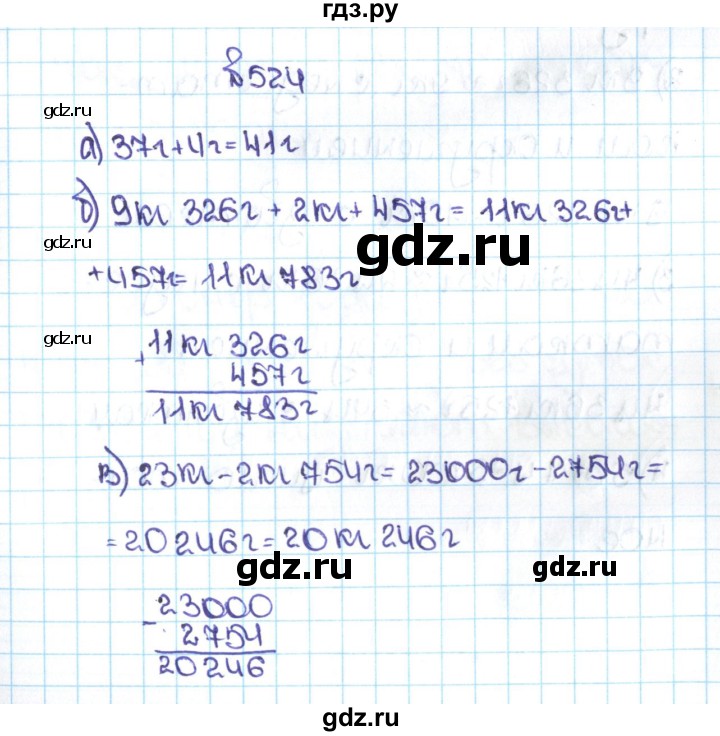 гдз.ру
№524
gdz.ru
а) 37г+4г=41г
б) 9кг 326г + 2кг + 457г = 11кг 326г+
gdz.ru
gdz.ru
+457г= 11кг 783г
gdz.ru
+ 11кг 326г
457г
11кг 783г
в) 23кг-2кг 754г= 23000г-2754г=
= 20246г= 20кг 246г
gdz.ru
gdz.ru
- 23000
2754
20246
gdz.ru